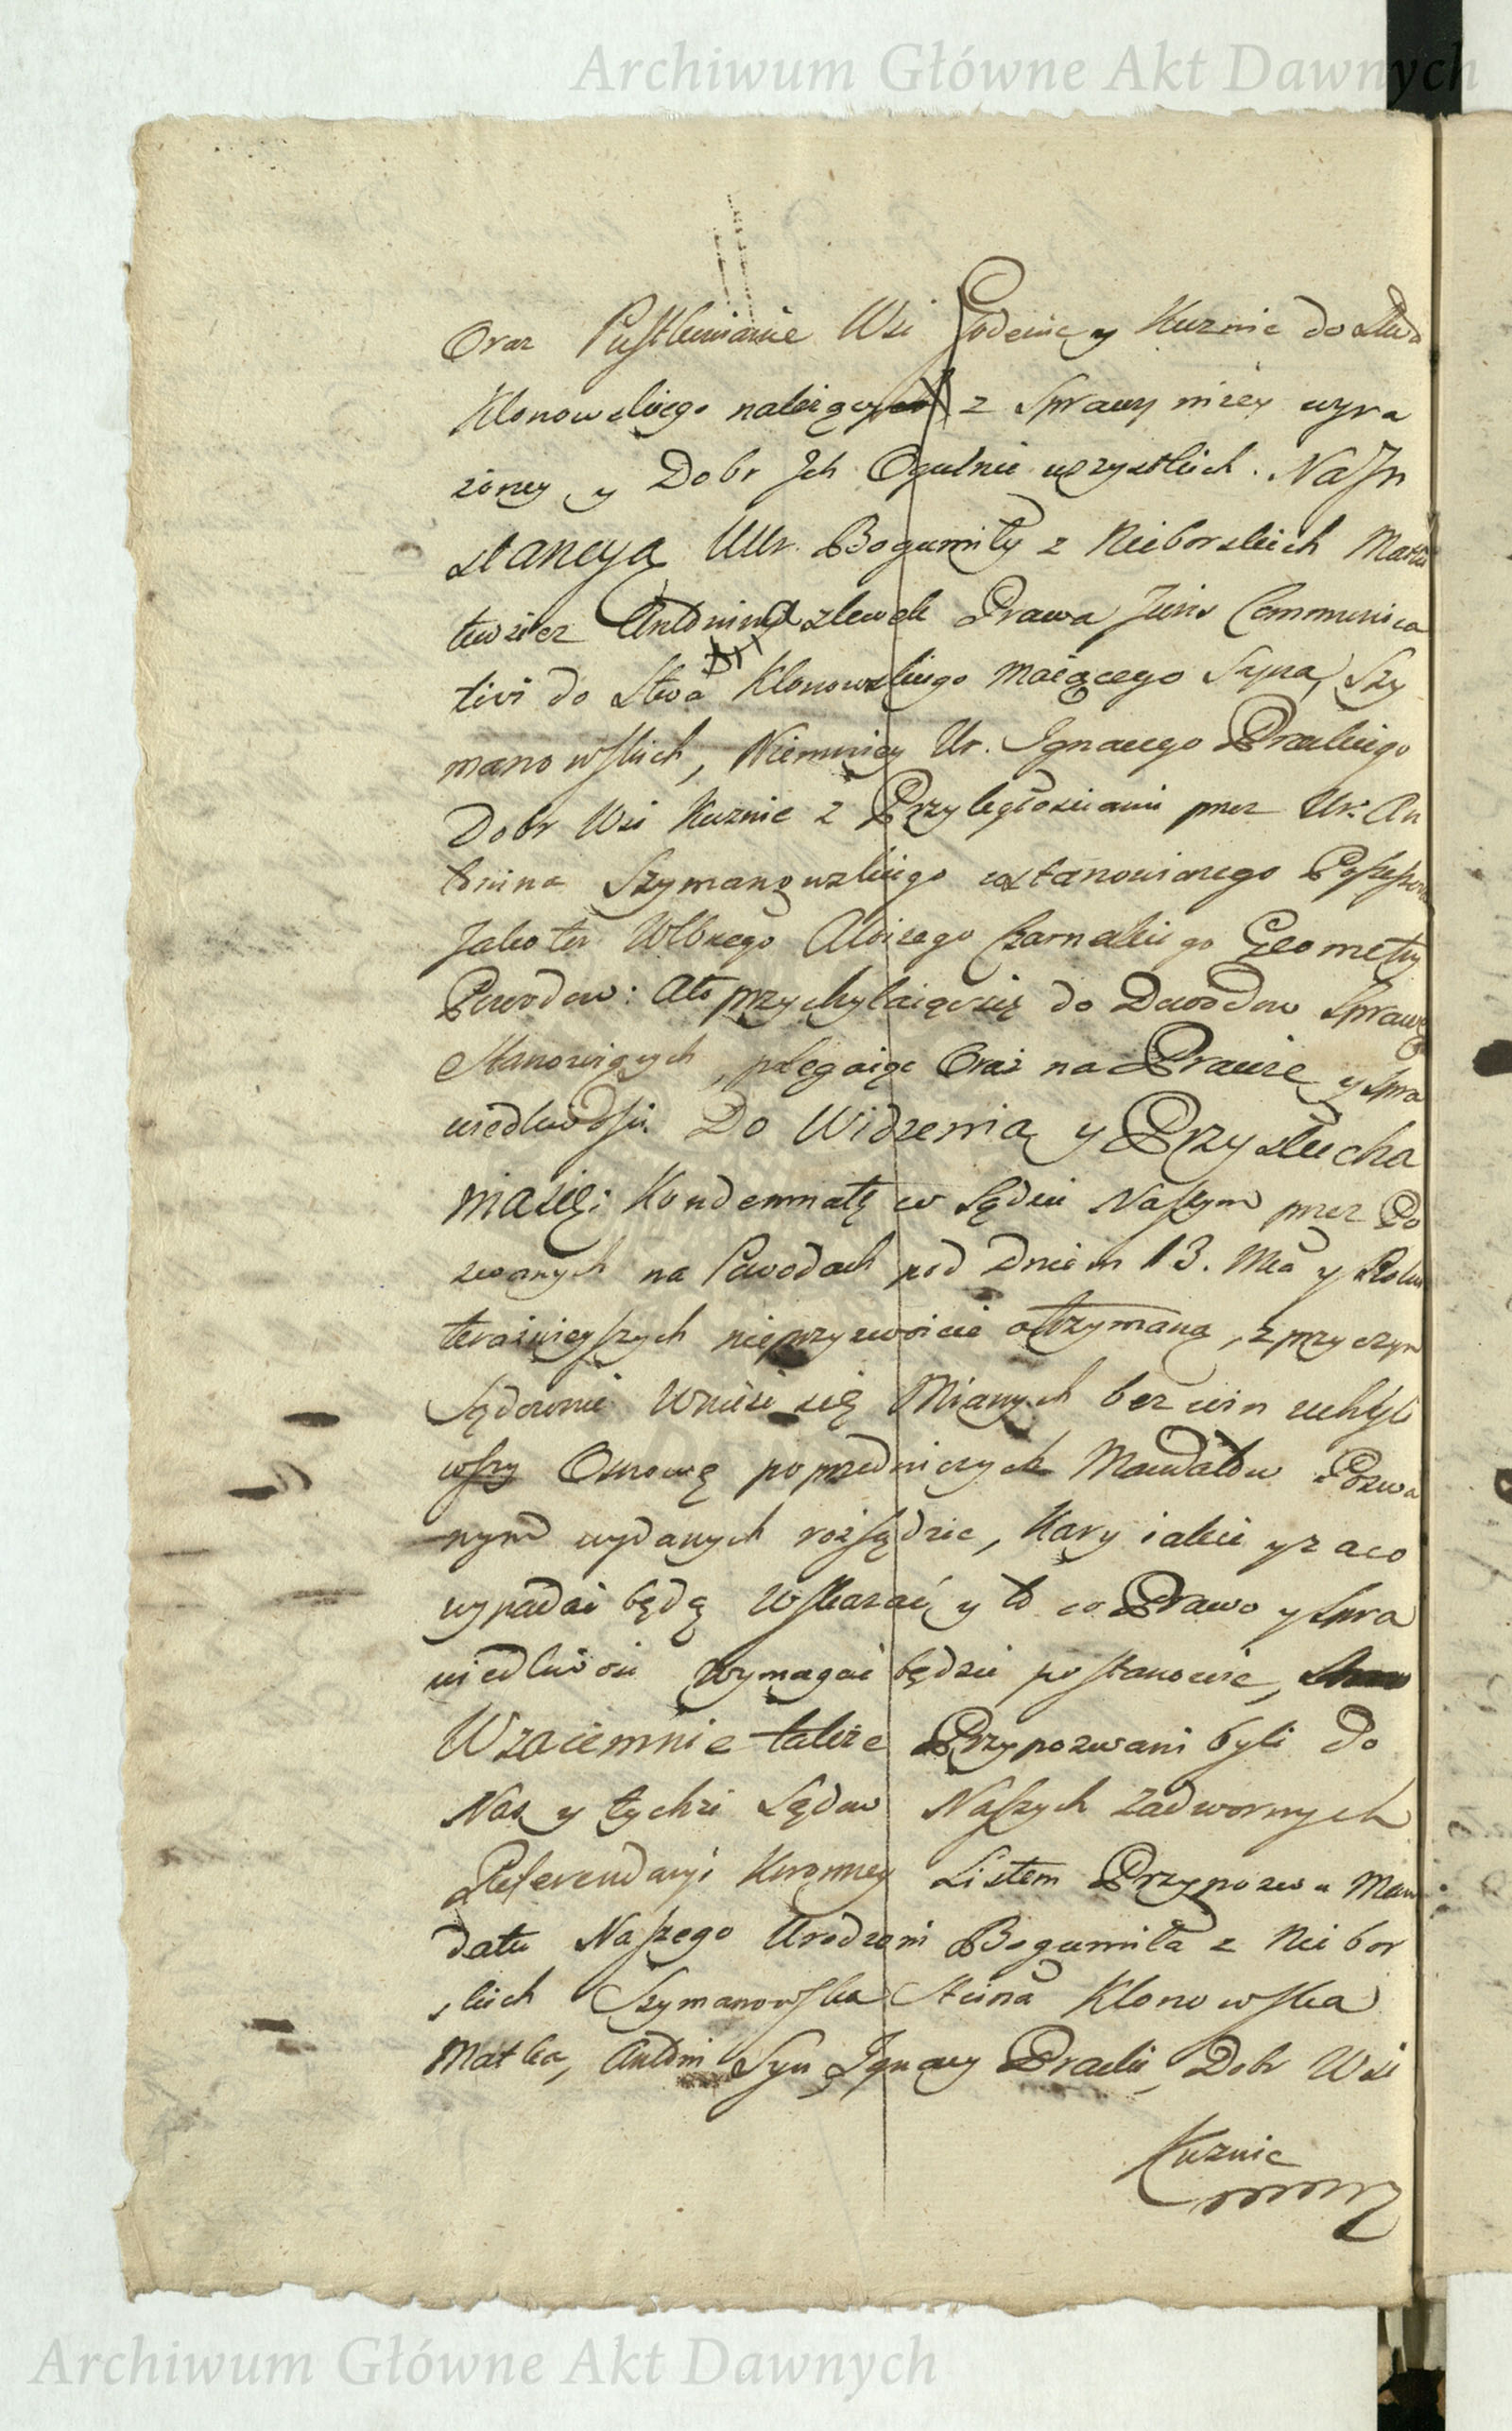 Archiwum Główne Akt Dawnych
Oraz Pustkowianie Wsi Godenic y Kuznic do Stwa
Klonowskiego należący z Sprawy niżey wyra
żoney y Dobr Ich Ogulnie wszystkich. Na In
stancyą Ur. Bogumiły z Neiborskich Matki
tudziez Antonina zlewek Prawa Juris Communica
tivi do Stwa Klonowskiego maiącego Syna, Szy
manowskich, Niemniey Ur. Ignacego Prackiego
Dobr Wsi Kuznic z Przyległosciami przez Ur: An
tonina Szymanowskiego ustanowionego Possessora
Jako też Wlbnego Aloizego Czarneckiego Geometry
Powodow: Ato przychylaiąc się do Dowodow Sprawę
Stanowiących, polegaiąc Oraz na Prawie y Spra
wiedliwosci. Do Widzenia y Przysłucha
nia się: Kondemnatę w Sądzie Naszym przez Po
zwanych na Powodach pod Dniem 13. Mca y Roku
teraznieyszych nieprzyzwoicie otrzymaną, z przyczyn
Sądownie Wnieść się Mianych bez win uchyli
wszy Osnowę poprzedniczych Mandatow Pozwa
nym wydanych rozsądzic, Kary iakie y za co
wypadać będą Wskazać, y to co Prawo y Spra
wiedliwosc Wymagać będzie postanowic,
Wzaiemnie także Przypozwani byli do
Nas y tychże Sądow Naszych Zadwornych
Referendaryi Koronney Listem Przypozwu Man
datu Naszego Urodzeni Bogumiła z Neibor
skich Szymanowska Stcina Klonowska
Matka, Antoni Syn Ignacy Pracki, Dobr Wsi
Kuznic
Archiwum Główne Akt Dawnych